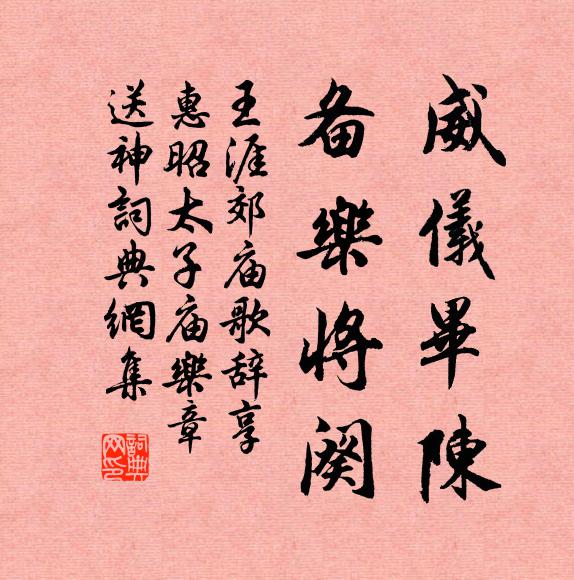 威儀畢陳
备樂將闋
王涯郊庙歌辞享
惠昭太子庙樂章
送神詞典網集
詞典网印